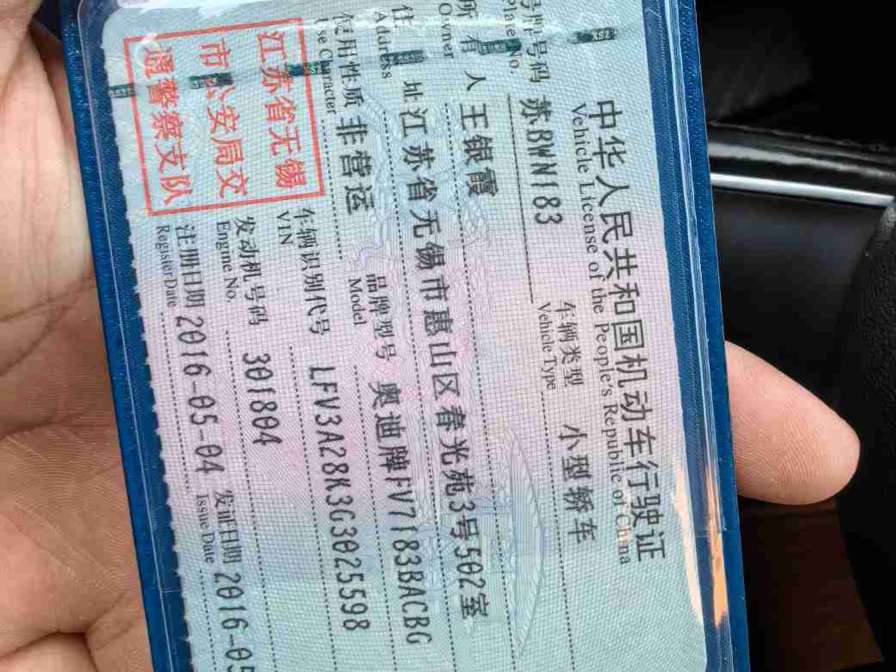 中华人民共和国机动车行驶证
Vehicle License of the People's Republic of China
号牌号码 苏BWN183 车辆类型 小型轿车
Plate No. Vehicle Type
所有人 王银霞
Owner
住址 江苏省无锡市惠山区春光苑3号502室
Address
使用性质 非营运 品牌型号 奥迪牌FV7183BACBG
Use Character Model
车辆识别代号 LFV3A28K3G3025598
VIN
发动机号码 301804
Engine No.
注册日期 2016-05-04 发证日期 2016-05
Register Date Issue Date
江苏省无锡
市公安局交
通警察支队